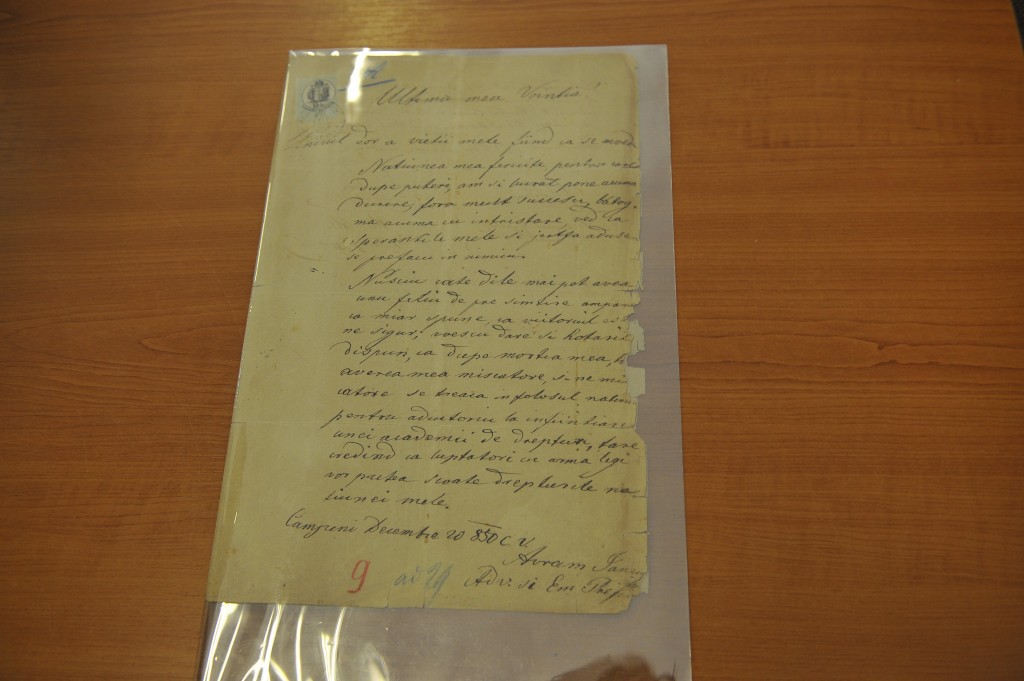 Ultima mea Vointia!
Unicul dor a vietii mele fiind ca se mved
Natiunea mea fericite pentru care
dupe puteri, am si lucrat pone acuma
durere, fora mult succesu, batog-
ma acuma cu intristare, ved ca
sperantiele mele si jertfa aduse
se prefacu in nimicu.
Nusciu cate dile mai pot avea
unu feliu de pre simtire
ca miar spune, ca viitoriul este
ne sigur, voescu dare si hotarit
dispun, ca dupe mortea mea,
averea mea miscatore, si ne mis
catore se treaca in folosul natiun
pentru adiutoriu la infiintiare
unei academii de drepturi, tare
credind ca luptatori cu arma legi
vor putea scoate drepturile na-
tiunei mele.
Campeni Decembre 20 850 C. V.
Avram Iancu
Adv. si Em Pref
9 ad 29